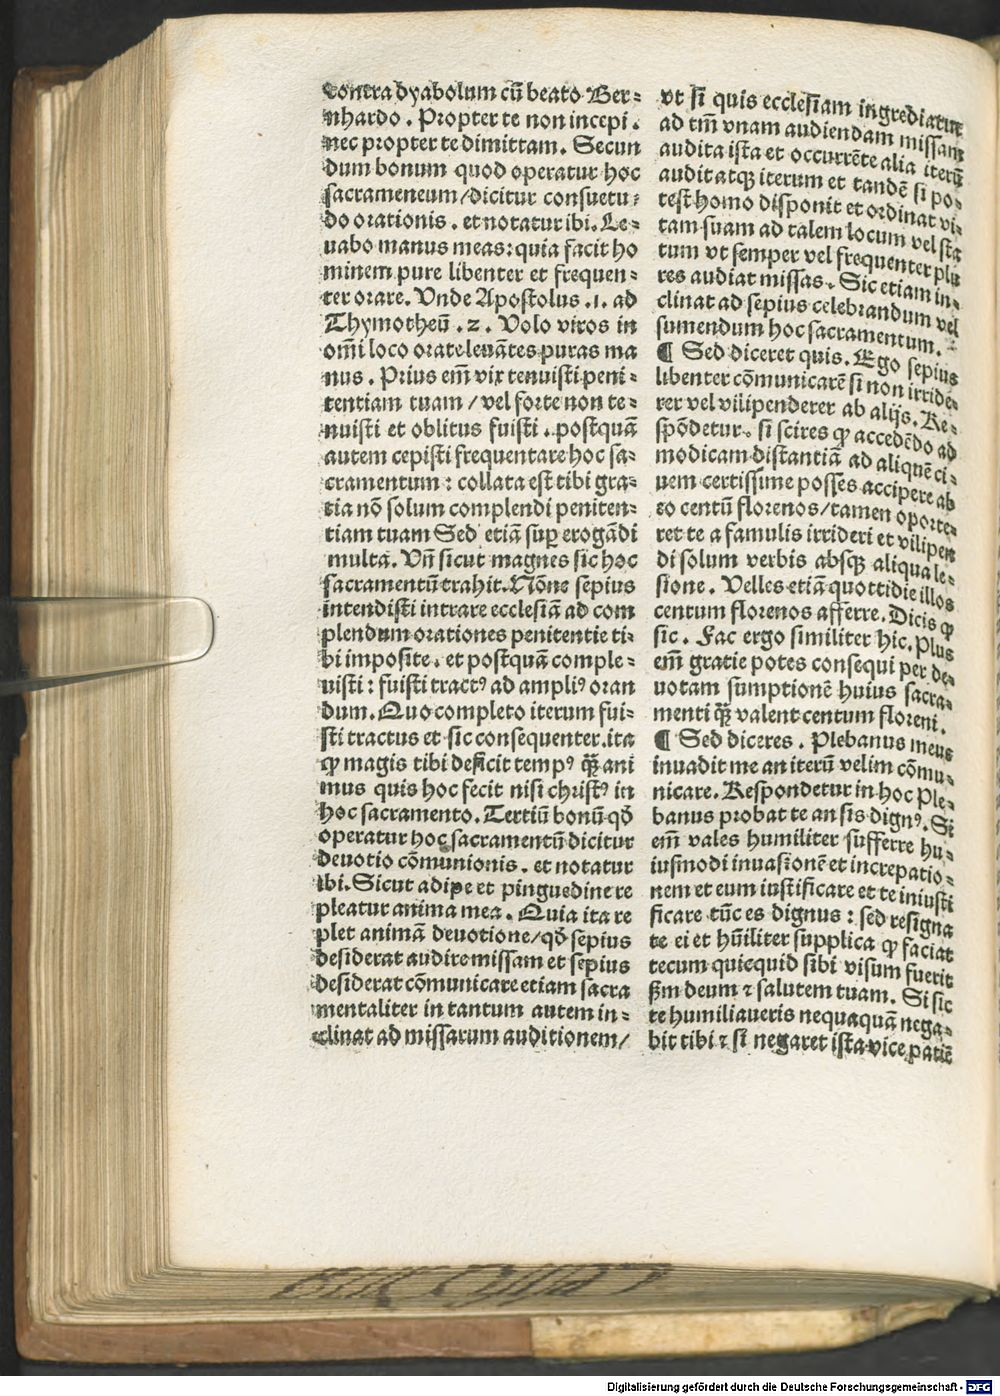 contra dyabolum cū beato Ber⸗
nhardo. Propter te non incepi.
nec propter te dimittam. Secun
dum bonum quod operatur hoc
sacrameneum/dicitur consuetu⸗
do orationis. et notatur ibi. Le⸗
uabo manus meas: quia facit ho
minem pure libenter et frequen⸗
ter orare. Vnde Apostolus .1. ad
Thymotheū .2. Volo viros in
om̄i loco orate leuātes puras ma
nus. Prius em̄ vix tenuisti peni⸗
tentiam tuam / vel forte non te⸗
nuisti et oblitus fuisti. postquā
autem cepisti frequentare hoc sa⸗
cramentum: collata est tibi gra⸗
tia nō solum complendi peniten⸗
tiam tuam Sed etiā suꝑ erogādi
multa. Vn̄ sicut magnes sic hoc
sacramentū trahit. Nōne sepius
intendisti intrare ecclesiā ad com
plendum orationes penitentie ti⸗
bi imposite. et postquā comple⸗
uisti: fuisti tractꝰ ad ampliꝰ oran
dum. Quo completo iterum fui⸗
sti tractus et sic consequenter. ita
ꝙ magis tibi deficit tempꝰ q̄ꝫ ani
mus quis hoc fecit nisi christꝰ in
hoc sacramento. Tertiū bonū qď
operatur hoc sacramentū dicitur
deuotio cōmunionis. et notatur
ibi. Sicut adipe et pinguedine re
pleatur anima mea. Quia ita re
plet animā deuotione/qď sepius
desiderat audire missam et sepius
desiderat cōmunicare etiam sacra
mentaliter in tantum autem in⸗
clinat ad missarum auditionem/
vt si quis ecclesiam ingrediatur
ad tm̄ vnam audiendam missam
audita ista et occurrēte alia iterū
audit atqꝫ iterum et tandē si po⸗
test homo disponit et ordinat vi⸗
tam suam ad talem locum vel sta
tum vt semper vel frequenter plu
res audiat missas. Sic etiam in⸗
clinat ad sepius celebrandum vel
sumendum hoc sacramentum.
¶ Sed diceret quis. Ego sepius
libenter cōmunicarē si non irride⸗
rer vel vilipenderer ab alijs. Re⸗
spōdetur. si scires ꝙ accedēdo ad
modicam distantiā ad aliquē ci⸗
uem certissime posses accipere ab
eo centū florenos/tamen oporte⸗
ret te a famulis irrideri et vilipen
di solum verbis absqꝫ aliqua le⸗
sione. Velles etiā quottidie illos
centum florenos afferre. Dicis ꝙ
sic. Fac ergo similiter hic. Plus
em̄ gratie potes consequi per de⸗
uotam sumptionē huius sacra⸗
menti q̄ꝫ valent centum floreni.
¶ Sed diceres. Plebanus meus
inuadit me an iterū velim cōmu⸗
nicare. Respondetur in hoc Ple⸗
banus probat te an sis dignꝰ. Si
em̄ vales humiliter sufferre hu⸗
iusmodi inuasionē et increpatio⸗
nem et eum iustificare et te iniusti
ficare tūc es dignus: sed resigna
te ei et hūiliter supplica ꝙ faciat
tecum quicquid sibi visum fuerit
ẜm deum ⁊ salutem tuam. Si sic
te humiliaueris nequaquā nega⸗
bit tibi ⁊ si negaret ista vice patiē
Digitalisierung gefördert durch die Deutsche Forschungsgemeinschaft - DFG